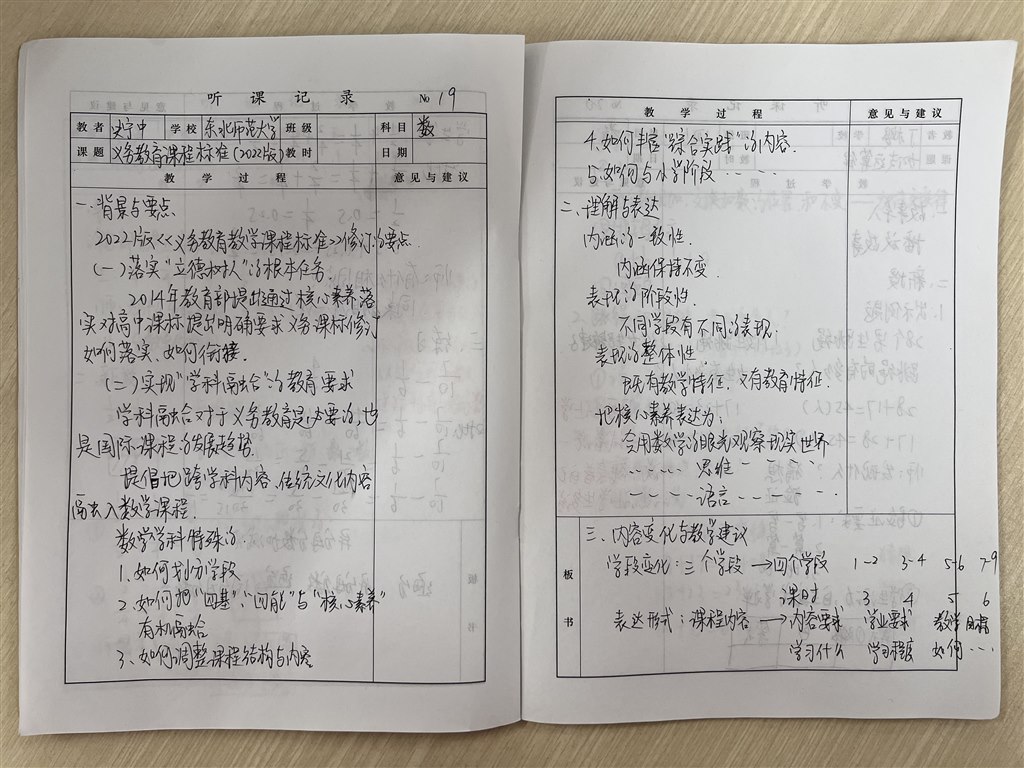 听课记录 № 19
教者 史宁中 学校 东北师范大学 班级 科目 数
课题 义务教育课程标准(2022版) 教时 日期
教学过程 意见与建议
一、背景与要点
2022版<<义务教育教学课程标准>>修订的要点.
(一)落实"立德树人"的根本任务.
2014年教育部提出通过核心素养落
实对高中课标提出明确要求义务课标修订
如何落实、如何衔接.
(二)实现"学科融合"的教育要求
学科融合对于义务教育是必要的,也
是国际课程的发展趋势.
提倡把跨学科内容、传统文化内容
融入数学课程.
数学学科特殊的.
1.如何划分学段
2.如何把"四基"、"四能"与"核心素养"
有机融合
3、如何调整课程结构与内容
教学过程 意见与建议
4.如何丰富"综合实践"的内容.
5.如何与小学阶段.....
二、理解与表达
内涵的一致性.
内涵保持不变.
表现的阶段性.
不同学段有不同的表现.
表现的整体性.
既有数学特征,又有教育特征.
把核心素养表达为:
会用数学的眼光观察现实世界
...... 思维 -
- - - - 语言 - - - -
三、内容变化与教学建议
学段变化:三个学段→四个学段 1-2 3-4 5-6 7-9
课时 3 4 5 6
表达形式:课程内容→内容要求 学业要求 教学目标
学习什么 学习程度 如何...
板书